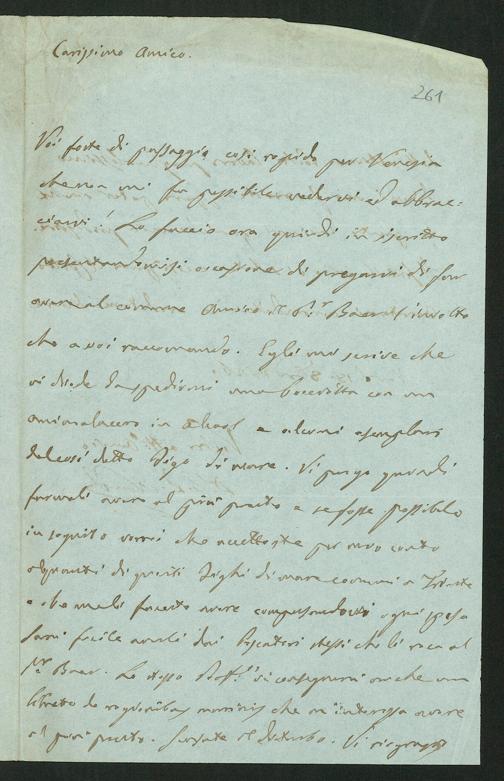 Carissimo Amico.
261
Voi foste di passaggio così rapido per Venezia
che non mi fu possibile vedervi ed abbrac=
ciarvi! Lo faccio ora quindi in iscritto
presentandomisi occasione di pregarvi di far
avere al comune Amico il D.r Baer l'involto
che a voi raccomando. Egli mi scrive che
vi diede da spedirmi una boccetta con un
animalaccio in alcool e alcuni esemplari
del così detto Figo di mare. Vi prego quindi
farmeli avere al più presto e se fosse possibile
in seguito vorrei che accettaste per mio conto
di questi Fighi di mare comuni a Trieste
e che me li faceste avere compensandovi ogni spesa
Sarà facile averli dai Pescatori stessi che li reca al
Baer. Lo stesso vi consegnerà anche un
libretto de marinis che m'interessa avere
al più presto. Scusate il disturbo. Vi